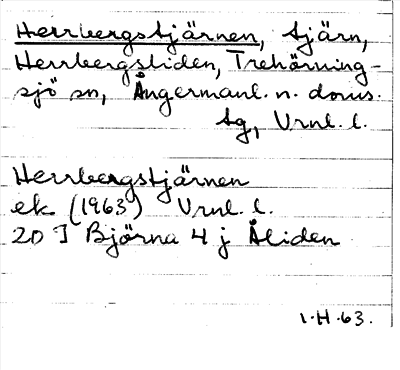 Herrbergstjärnen, tjärn,
Herrbergsliden, Trehörning-
sjö sn, Ångermanl. n. doms.
tg, Vrnl. l.
Herrbergstjärnen
ek (1963) Vrnl. l.
20 I Björna 4 j Åliden
1.H.63.